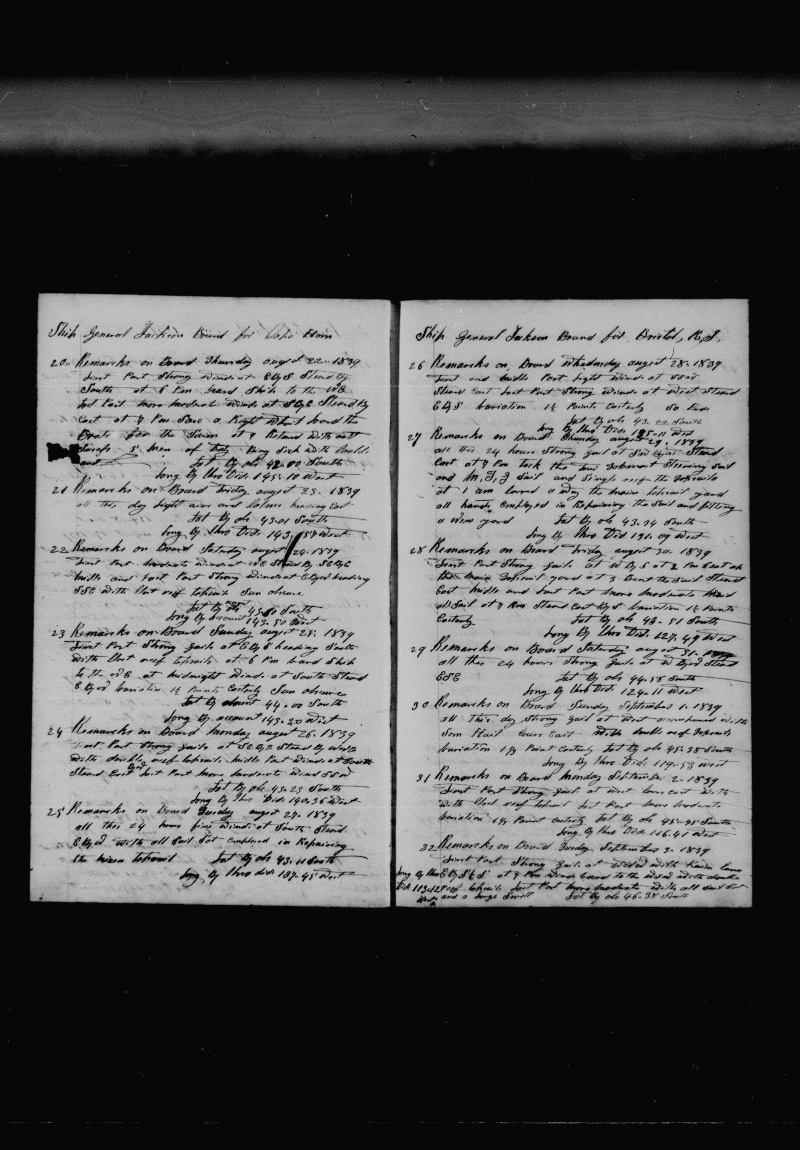 Ship General Jackson Bound for Cape Horn
20 Remarks on Board Thursday august 22 - 1839
First Part Strong winds at E by S Steard by
South at 6 Pm ward Ship to the NE
last Part more moderate winds at S by E Steard by
East at 8 Pm Saw a Right Whal lowd the
Boats for the Season at 9 Retand with out
Sucess 5 men of Duty Being Sick with Coulds
Lat by obs 42-00 South
Long By Chro Did 145-10 West
21 Remarks on Board friday august 23 - 1839
all this day light aires and Calms heading East
Lat By obs 43-01 South
Long By Chro Did 143- West
22 Remarks on Board Saturday august 24 - 1839
First Part Moderate winds at NE Steard By SE by E
Midle and last Part Strong winds at E by S heading
SSE with Clost reef topsails Sun obscure
Lat By act South
Long By account 143-50 West
23 Remarks on Board Sunday august 25 - 1839
First Part Strong gails at E by S heading South
With Clost reef topsails at 6 Pm ward Ship
to the NE at midnight winds at South Steard
E by N variation 1½ Points Easterly Sun obscure
Lat By account 44-00 South
Long By account 143-20 West
24 Remarks on Board Monday august 26 - 1839
First Part Strong gails at SE by E Steard By
With double reef topsails midle Part winds at South
Steard East last Part More moderate wind SSW
Lat By obs 43-23 South
Long By Chro Did 140-36 West
25 Remarks on Board Tuesday august 27 - 1839
all this 24 hours fine winds at South Steard
E by N with all Sail Set employed in Repairing
the mizen topsail Lat By obs 43-11 South
Long By Chro did 137-45 West
Ship General Jackson Bound for Bristol, R, I,
26 Remarks on Board Whednesday august 28 - 1839
First and midle Part light winds at SSW
Steard East last Part Strong winds at West Steard
E by S variation 1½ Points Easterly So Ends
Lat By obs 43-22 South
Long By Chro Did 135-11 West
27 Remarks on Board Thursday august 29 - 1839
all this 24 hours Strong gails at Steard
East at 8 Pm took the fore topmast Steering Sail
and M, T, G Sail and Single reef the topsails
at 1 am Carred a way the main topsail yard
all hands employed in Repairing the Sail and fitting
a New yard Lat By obs 43-34 South
Long By Chro Did 131-09 West
28 Remarks on Board Friday august 30 - 1839
First Part Strong gails at W by S at 2 Pm Cent up
the main topsail yard at 3 Bent the Sail Steard
East midle and last Part more moderate Mad
all Sail at 8 Pm Steard East by S variation 1½ Points
Easterly Lat By obs 43-51 South
Long By Chro Did 127-49 West
29 Remarks on Board Saturday august 31 -
all this 24 hours Strong gails at W by S Steard
ESE Lat By obs 44-58 South
Long By Chro Did 124-11 West
30 Remarks on Board Sunday September 1 - 1839
all this day Strong gail at West accompanied With
Som Hail Cours East With double reef topsails
variation 1½ Point Easterly Lat By obs 45-38 South
Long By Chro Did 119-53 West
31 Remarks on Board Monday September 2 - 1839
First Part Strong gails at West Cours East with
with Clost reef topsail last Part more moderate
variation 1½ Point Easterly Lat By obs 45-45 South
Long By Chro Did 116-41 West
32 Remarks on Board Tuesday September 3 - 1839
First Part Strong gails at WSW With
E by S ½ S at 8 Pm winds hauld to the WSW with double
reef topsails last Part more moderate with all Sail Set
and a large Swell Lat By obs 46-38 South
Long By Chro
Did 113-12
West